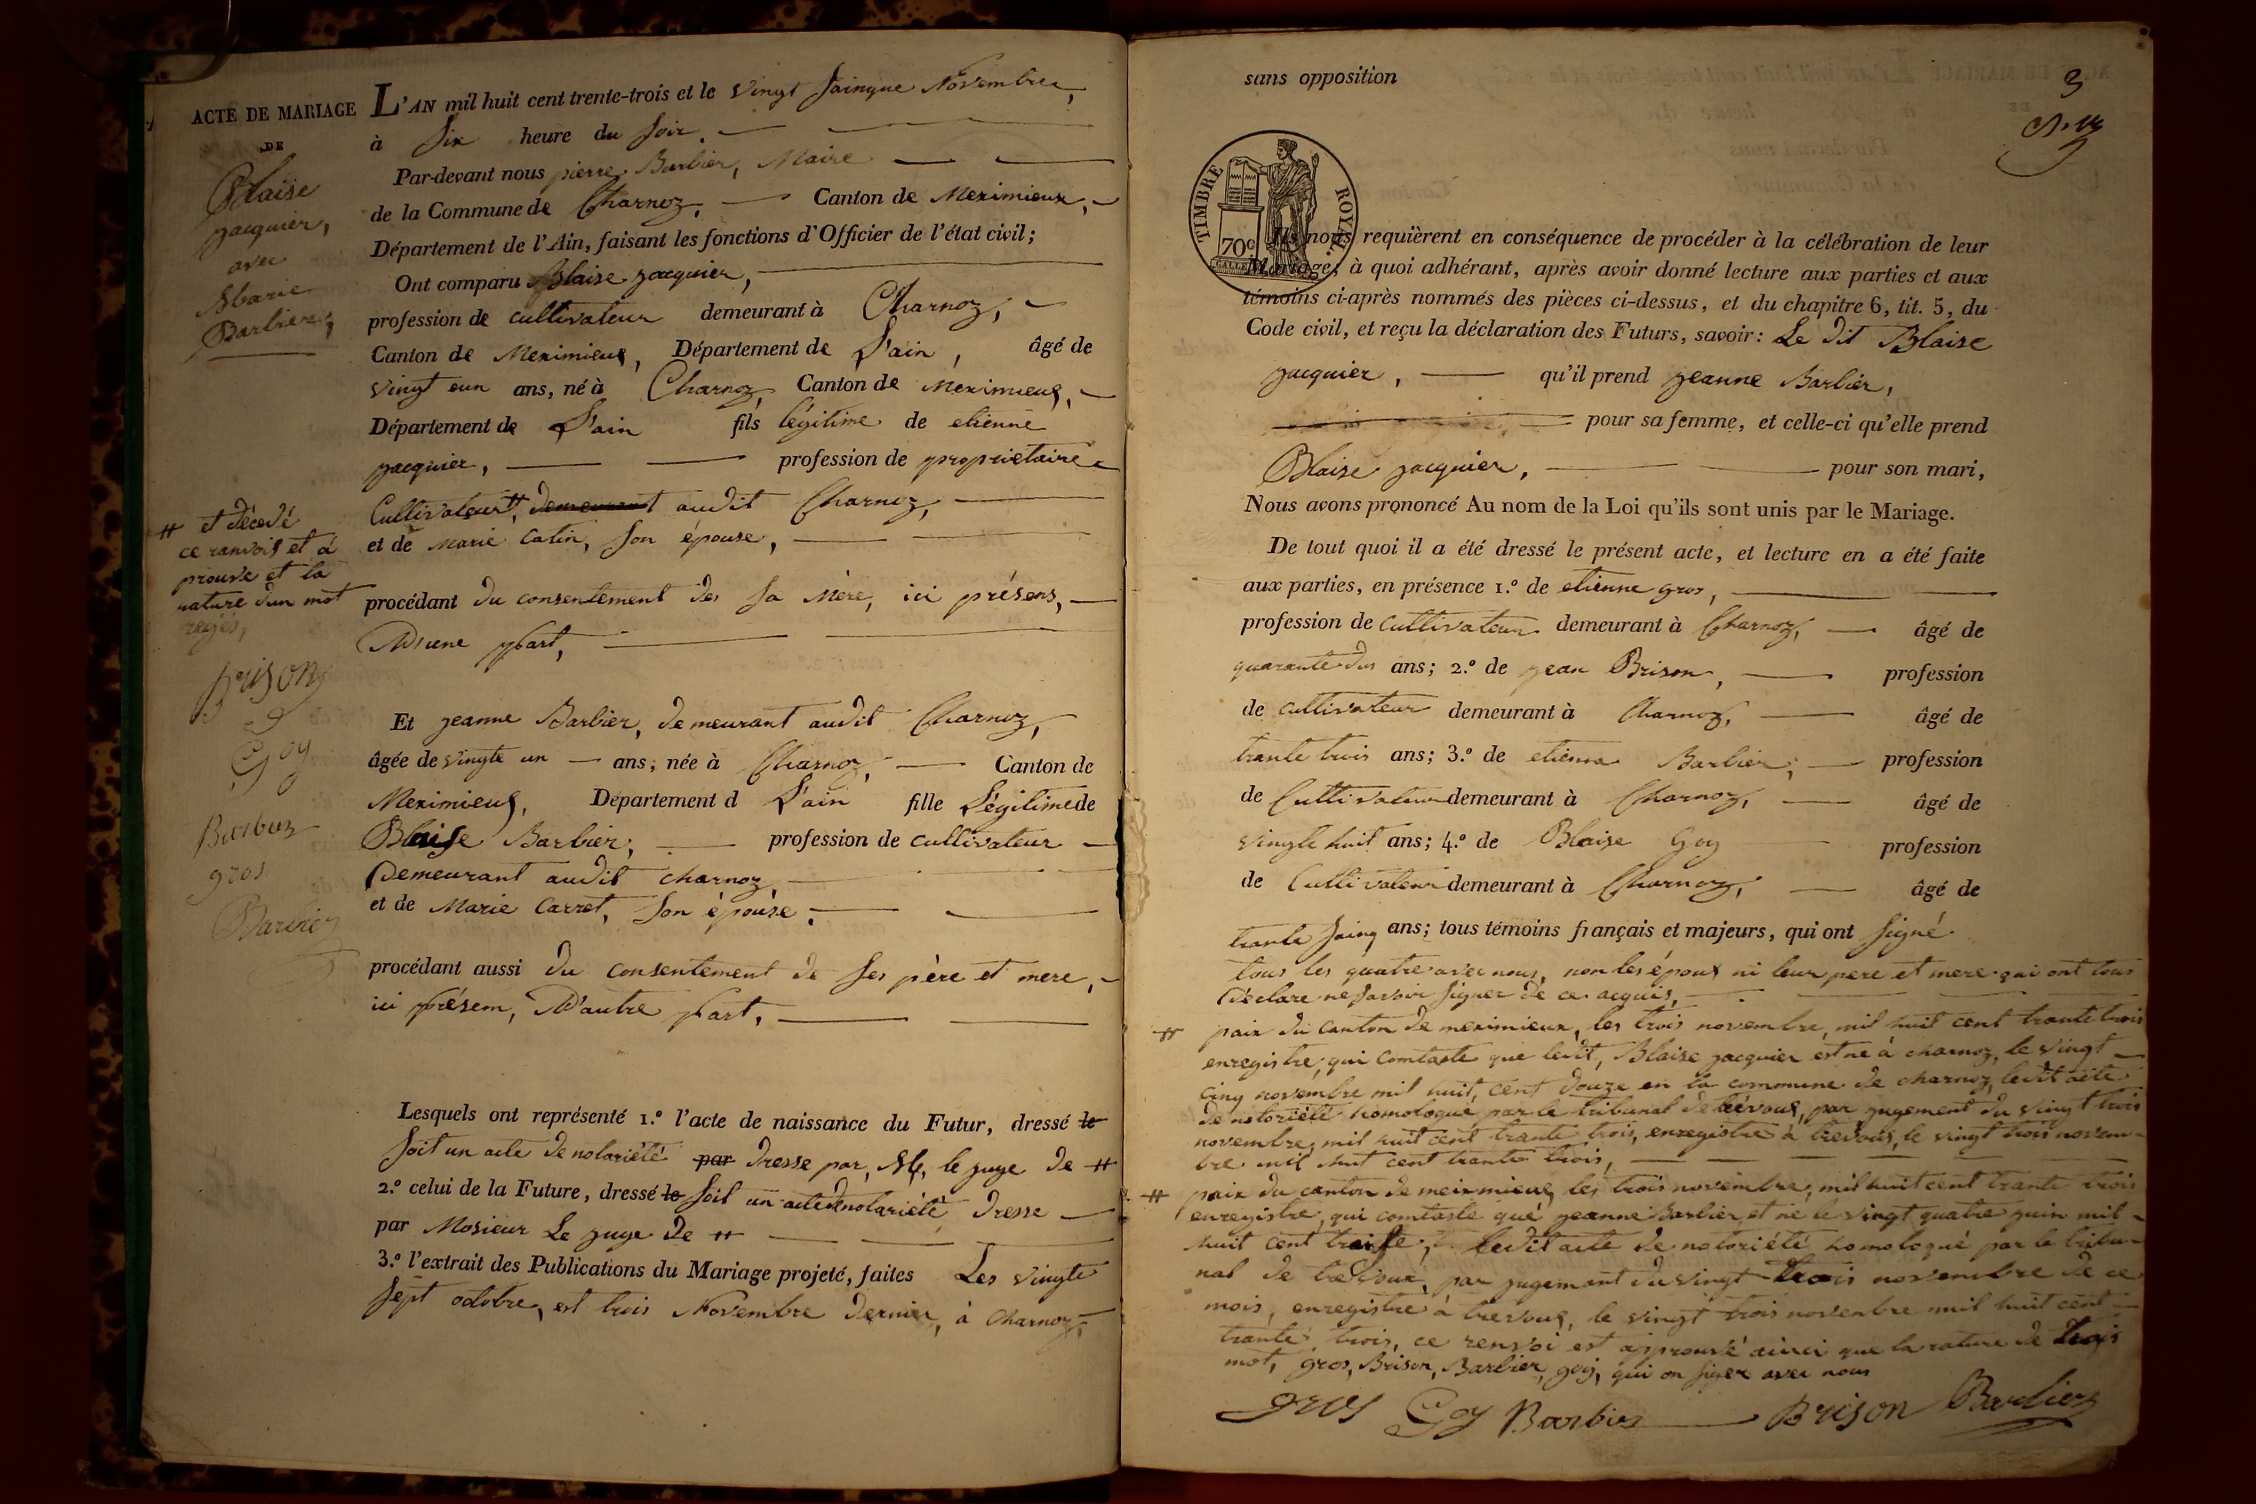 ACTE DE MARIAGE
DE
Blaise
jacquier,
avec
Marie
Barbier,
L'AN mil huit cent trente-trois et le vingt sainque Novembre,
à six heure du soir.
Par-devant nous pierre Barbier, Maire
de la Commune de Charnoz, Canton de Meximieux,
Département de l'Ain, faisant les fonctions d'Officier de l'état civil;
Ont comparu Blaise jacquier,
profession de cultivateur demeurant à Charnoz,
Canton de Meximieux, Département de L'ain, âgé de
vingt eun ans, né à Charnoz, Canton de Meximieux,
Département de L'ain fils légitime de etienne
jacquier, profession de propriétaire
Cultivateur ++, demeurant audit Charnoz,
et de Marie Catin, son épouse,
++ et décédé
ce ranvois et a
prouve et la
rature d'un mot
procédant du consentement des sa Mère, ici présens,
D'une part,
Brison
Goy
Barbier
gros
Barbier
Et jeanne Barbier, demeurant audit Charnoz,
âgée de vingte un ans, née à Charnoz, Canton de
Meximieux, Département d L'ain fille Légitime de
Blaise Barbier, profession de cultivateur
Demeurant audit charnoz,
et de Marie Carret, son épouse,
procédant aussi du consentement de ses père et mere,
ici présem, D'autre part,
Lesquels ont représenté 1.º l'acte de naissance du Futur, dressé le
soit un acte de notariété par dresse par, M, le juge de ++
2.º celui de la Future, dressé le soit un acte de notariété dresse
par Mosieur Le juge De ++
3.º l'extrait des Publications du Mariage projeté, faites Les vingte
sept octobre, est trois Novembre dernier, à Charnoz,
sans opposition
3
TIMBRE ROYAL
70c
Ils nous requièrent en conséquence de procéder à la célébration de leur
Mariage; à quoi adhérant, après avoir donné lecture aux parties et aux
témoins ci-après nommés des pièces ci-dessus, et du chapitre 6, tit. 5, du
Code civil, et reçu la déclaration des Futurs, savoir: Le dit Blaise
jacquier, qu'il prend jeanne Barbier,
pour sa femme, et celle-ci qu'elle prend
Blaise jacquier, pour son mari,
Nous avons prononcé Au nom de la Loi qu'ils sont unis par le Mariage.
De tout quoi il a été dressé le présent acte, et lecture en a été faite
aux parties, en présence 1.º de etienne gros,
profession de cultivateur demeurant à Charnoz, âgé de
quarante dus ans; 2.º de jean Brison, profession
de cultivateur demeurant à Charnoz, âgé de
trante trois ans; 3.º de etienne Barbier, profession
de Cultivateur demeurant à Charnoz, âgé de
vingte huit ans; 4.º de Blaise Goy profession
de Cultivateur demeurant à Charnoz, âgé de
trante sainq ans; tous témoins français et majeurs, qui ont signé
tous les quatre avec nous, non les époux ni leur pere et mere qui ont tous
Déclare ne savoir signer de ce acquis,
++ paix du canton de meximieux, les trois novembre, mil huit cent trante trois
enregistre, qui comtaste que ledit, Blaise jacquier est ne à charnoz, le vingt
cinq novembre mil huit, cent douze en la commune de charnoz, ledit acte
de notoriété homologué par le tribunal de trévoux, par jugement du vingt trois
novembre, mil huit cent trante trois, enregistre à trevous, le vingt trois novem-
bre mil huit cent trante trois,
++ paix du canton de meixmieux, les trois novembre, mil huit cent trante trois
enregistre, qui comtaste que jeanne Barbier et ne le vingt quatre juin mil
huit cent treise, ledit acte de notoriété homologué par le tribu-
nal de trevoux, par jugemant du vingt trois novembre de ce
mois, enregistré à trevoux, le vingt trois novembre mil huit cent
trante trois, ce renvoi est aprouvé ainci que la rature de trois
mot, gros, Brison, Barbier, goy, qui on signer avec nous
gros Goy Barbier Brison Barbier